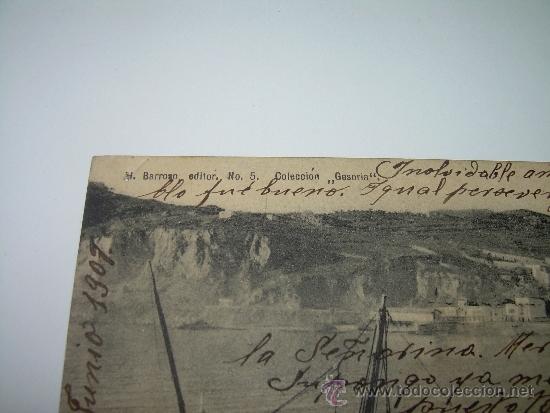 H. Barroso, editor. No. 5. Colección "Gesoria"
Inolvidable am
blo fué bueno. Igual perseve
Junio 1907
la Señorina. Mer
Supongo ya m
todocoleccion.net